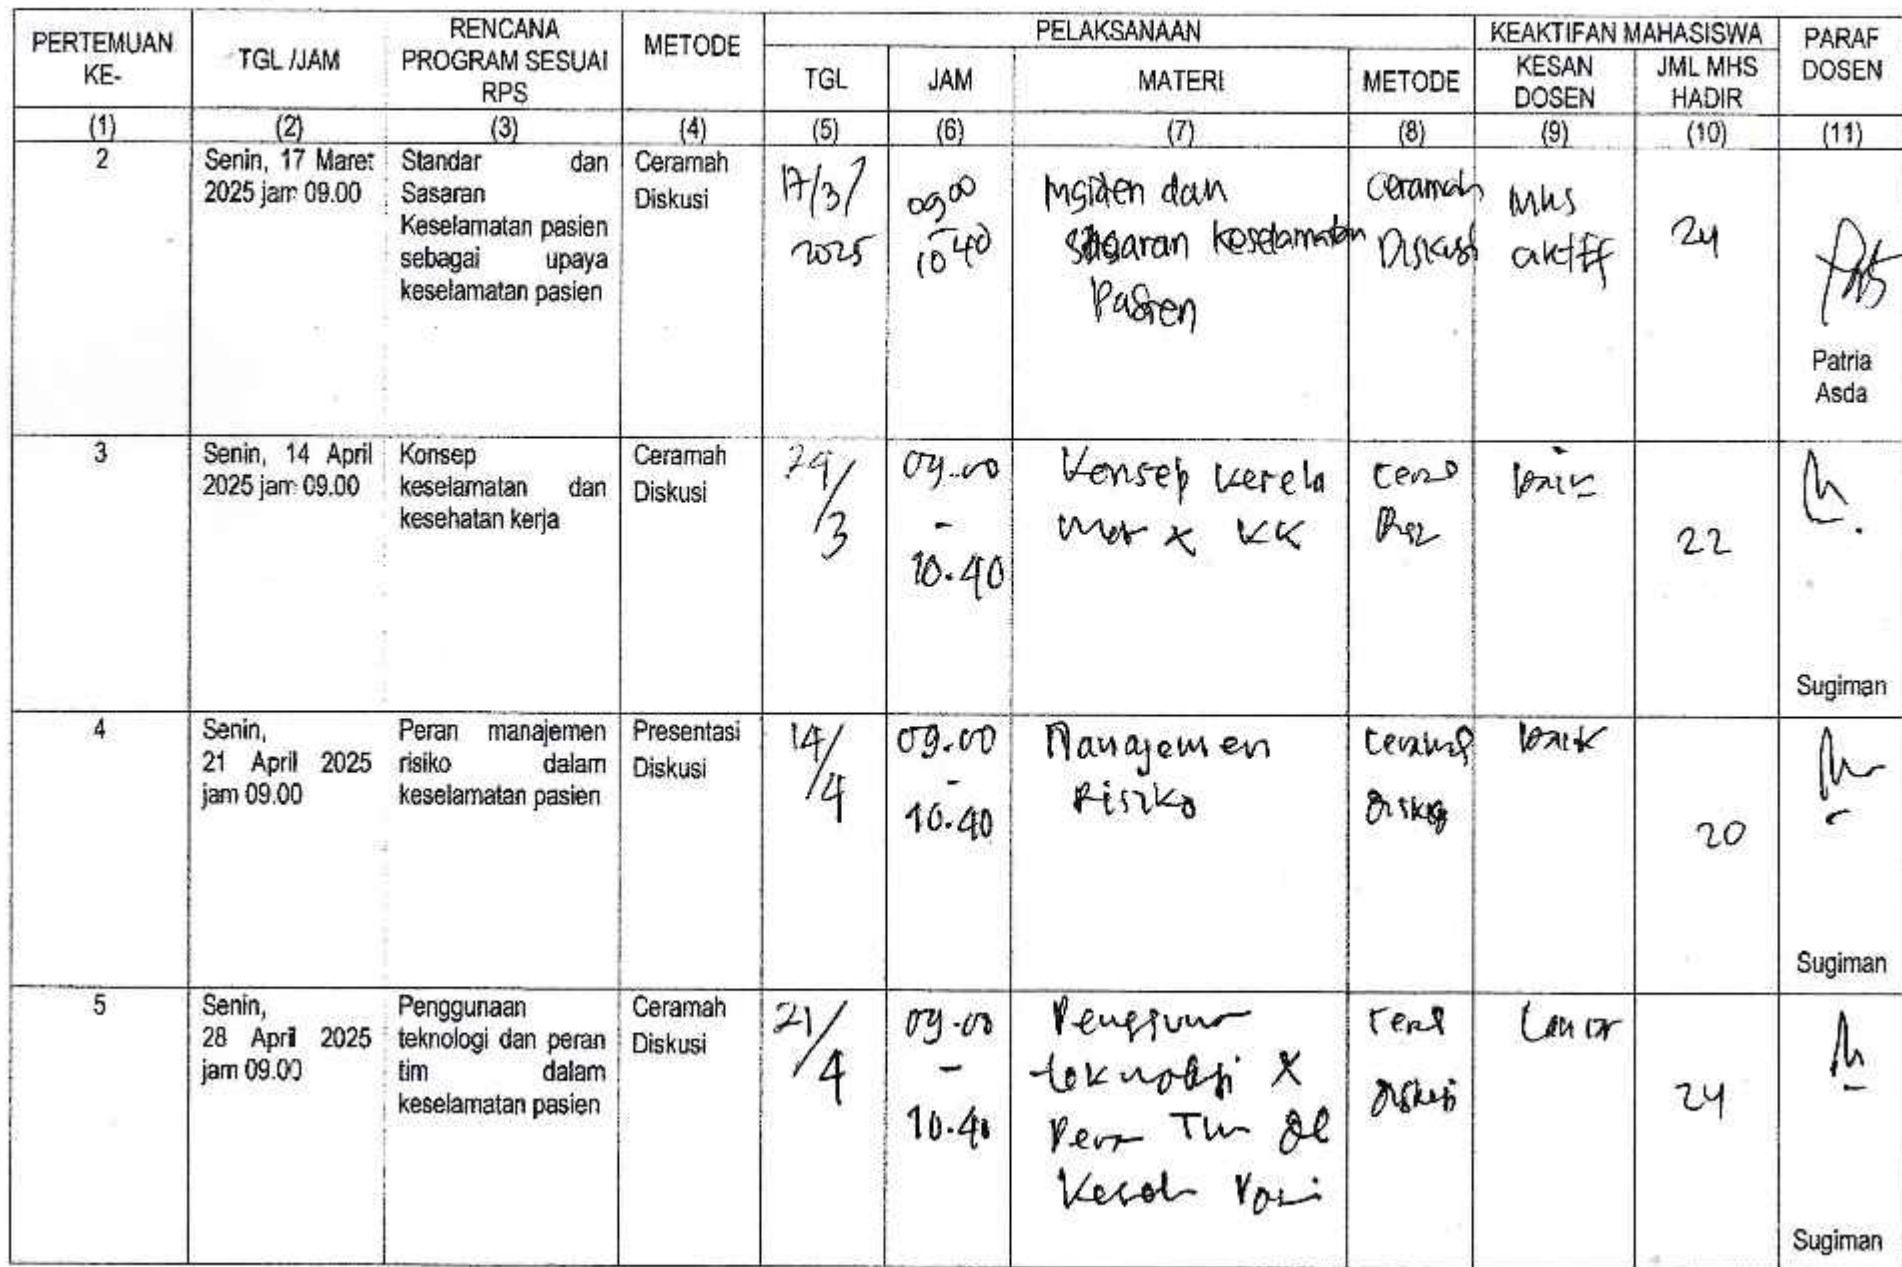 PERTEMUAN KE-
TGL /JAM
RENCANA PROGRAM SESUAI RPS
METODE
PELAKSANAAN
KEAKTIFAN MAHASISWA
PARAF DOSEN
TGL
JAM
MATERI
METODE
KESAN DOSEN
JML MHS HADIR
(1) (2) (3) (4) (5) (6) (7) (8) (9) (10) (11)
2
Senin, 17 Maret
2025 jam 09.00
Standar dan
Sasaran
Keselamatan pasien
sebagai upaya
keselamatan pasien
Ceramah
Diskusi
17/3/
2025
09 00
-
10 40
Insiden dan
sasaran keselamatan
Pasien
Ceramah
Diskusi
Mhs
aktif
24
Patria
Asda
3
Senin, 14 April
2025 jam 09.00
Konsep
keselamatan dan
kesehatan kerja
Ceramah
Diskusi
24/3
09.00
-
10.40
Konsep
KK
baik
22
Sugiman
4
Senin,
21 April 2025
jam 09.00
Peran manajemen
risiko dalam
keselamatan pasien
Presentasi
Diskusi
14/4
09.00
-
10.40
Manajemen
Risiko
Ceramah
diskusi
baik
20
Sugiman
5
Senin,
28 April 2025
jam 09.00
Penggunaan
teknologi dan peran
tim dalam
keselamatan pasien
Ceramah
Diskusi
21/4
09.00
-
10.40
teknologi
Tim
diskusi
24
Sugiman